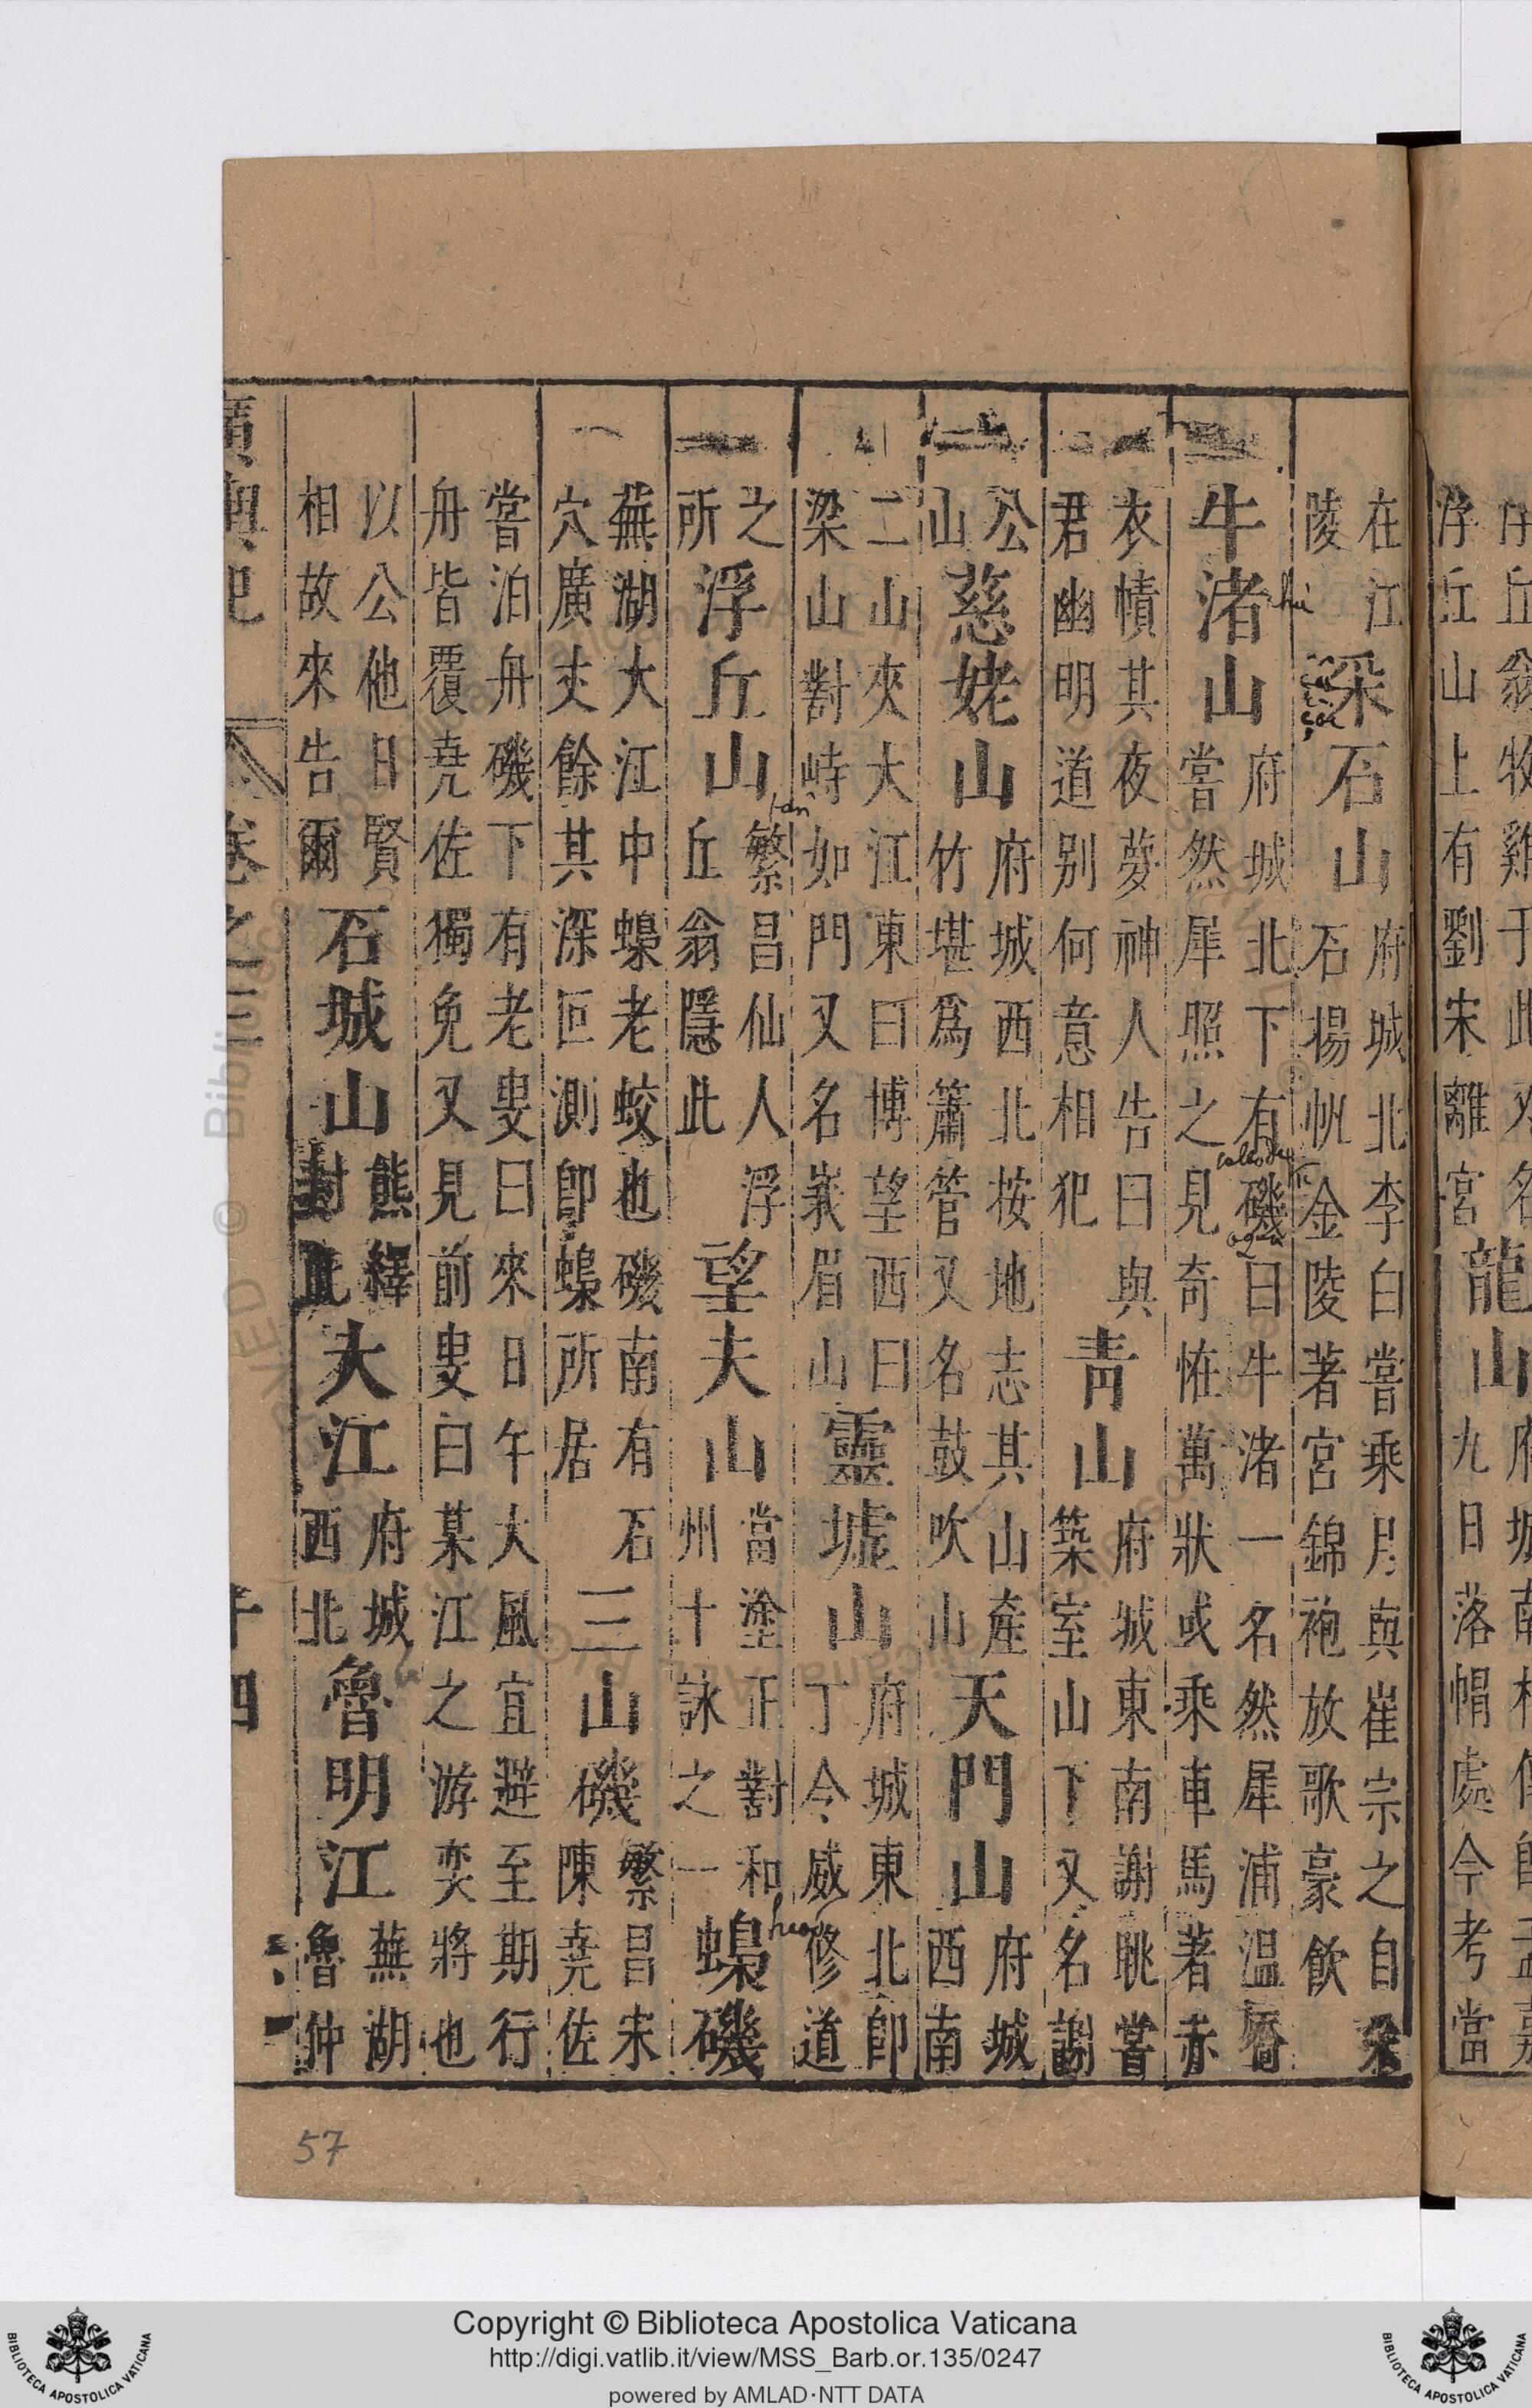 浮丘山上有劉宋離宮
龍山
九日落帽處今考當
在江
陵
采石山
府城北李白嘗乘月與崔宗之自采
石揚帆金陵著宮錦袍放歌豪飲
牛渚山
府城北下有磯曰牛渚一名然犀浦温嶠
嘗然犀照之見奇怪萬狀或乘車馬著赤
衣幘其夜夢神人告曰與
君幽明道别何意相犯
青山
府城東南謝眺嘗
築室山下又名謝
公
山
慈姥山
府城西北按地志其山産
竹堪爲簫管又名鼓吹山
天門山
府城
西南
二山夾大江東曰博望西曰
梁山對峙如門又名峩眉山
靈墟山
府城東北即
丁令威修道
之
所
浮丘山
繁昌仙人浮
丘翁隱此
望夫山
當塗正對和
州十詠之一
蟂磯
蕪湖大江中蟂老蛟也磯南有石
穴廣丈餘其深叵測即蟂所居
三山磯
繁昌宋
陳堯佐
嘗泊舟磯下有老叟曰來日午大風宜避至期行
舟皆覆堯佐獨免又見前叟曰某江之游奕將也
以公他日賢
相故來告爾
石城山
熊繹
封此
大江
府城
西北
魯明江
蕪湖
魯仲
廣輿記
卷之二
十四
57
Copyright © Biblioteca Apostolica Vaticana
http://digi.vatlib.it/view/MSS_Barb.or.135/0247
powered by AMLAD·NTT DATA
BIBLIOTECA APOSTOLICA VATICANA
BIBLIOTECA APOSTOLICA VATICANA